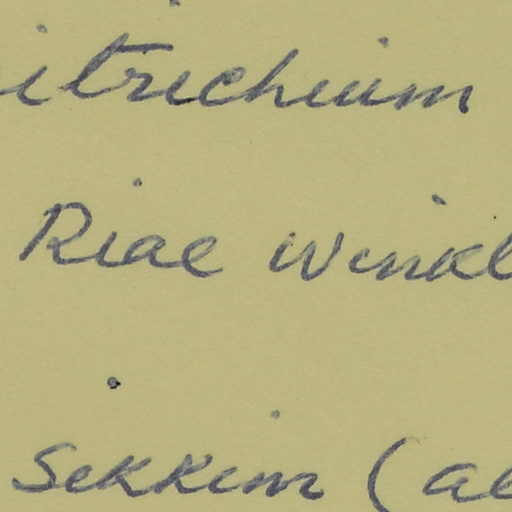 itrichium
Riae Winkl
Sikkim (al